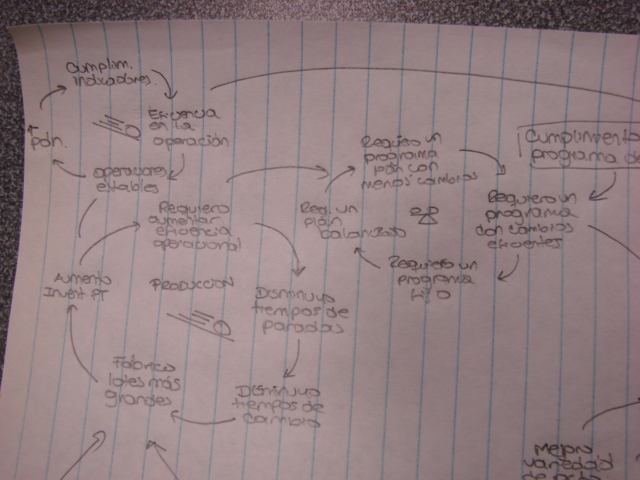 Cumplim.
indicadores.
Eficiencia
en la
operación
pdn.
operaciones
estables
Requiero
aumentar
eficiencia
operacional
Aumento
Invent. PT
PRODUCCION
Disminuyo
tiempos de
paradas
Fabrico
lotes más
grandes
Disminuyo
tiempos de
cambio
Requiero un
programa
pdn con
menos cambios
Req. un
plan
balanceado
Requiero un
programa
Cumplimiento
programa de
Requiero un
programa
con cambios
eficientes
Mejro
variedad
de